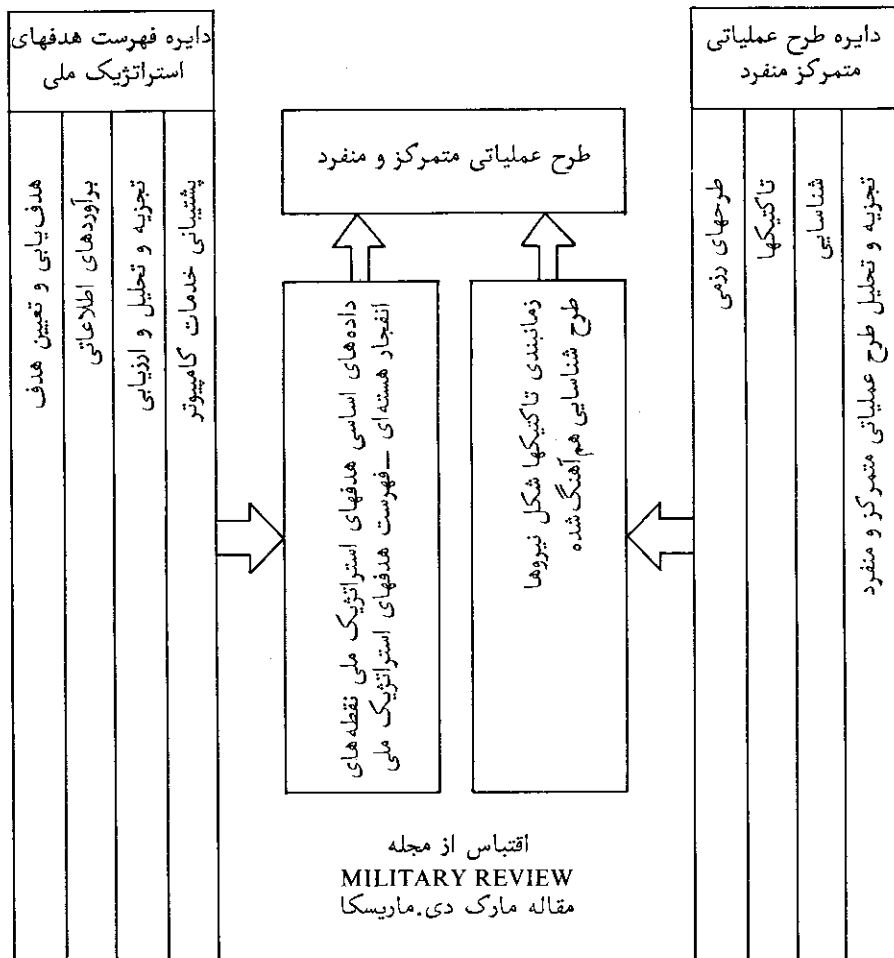 دایره طرح عملیاتی
متمرکز منفرد
تجزیه و تحلیل طرح عملیاتی متمرکز و منفرد
شناسایی
تاکتیکها
طرحهای رزمی
طرح عملیاتی متمرکز و منفرد
زمانبندی تاکتیکها شکل نیروها
طرح شناسایی هم‌آهنگ شده
داده‌های اساسی هدفهای استراتژیک ملی نقطه‌های
انفجار هسته‌ای –فهرست هدفهای استراتژیک ملی
دایره فهرست هدفهای
استراتژیک ملی
پشتیبانی خدمات کامپیوتر
تجزیه و تحلیل و ارزیابی
برآوردهای اطلاعاتی
هدف‌یابی و تعیین هدف
اقتباس از مجله
MILITARY REVIEW
مقاله مارک دی.ماریسکا